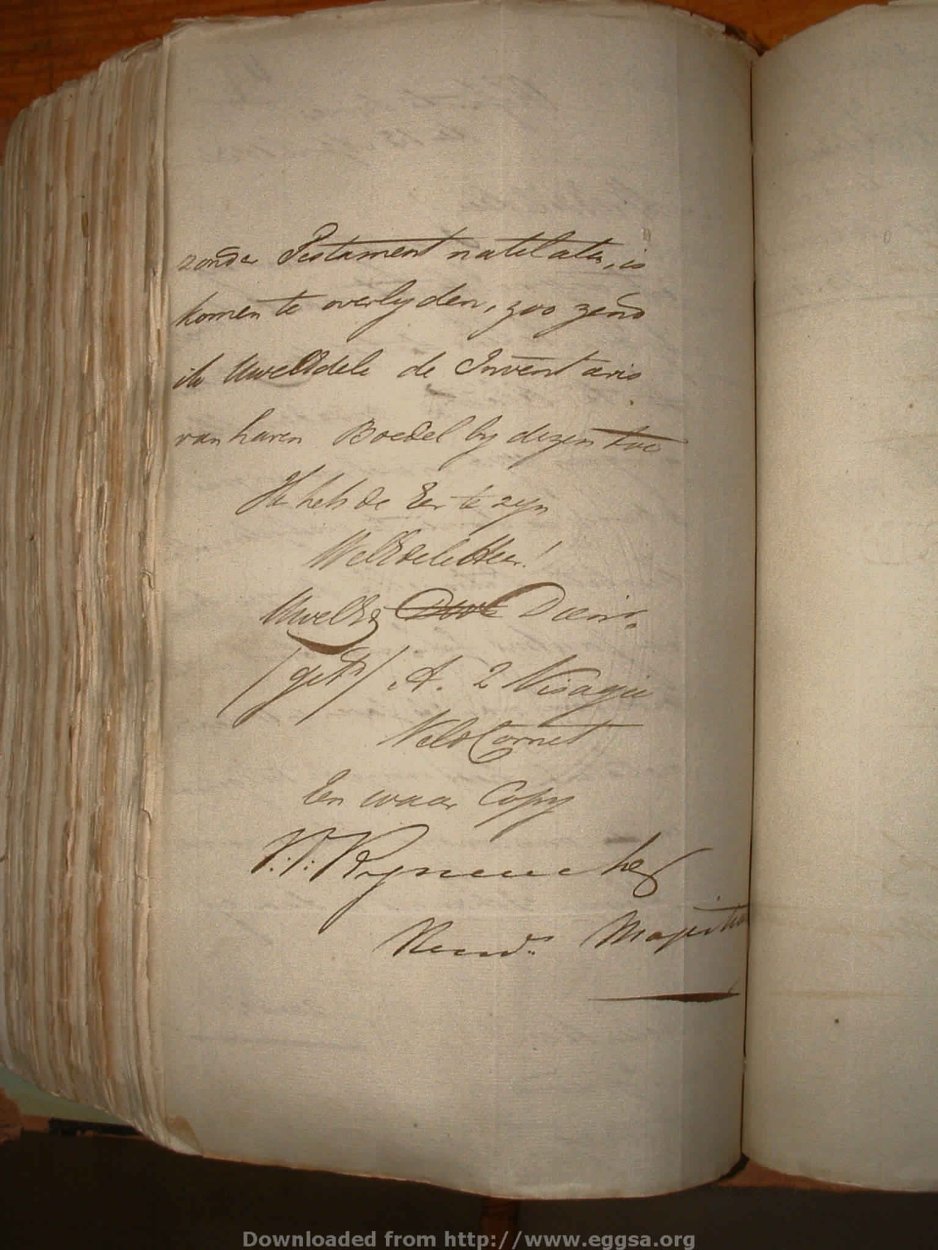 zonder Testament natelaten, is
komen te overlyden, zoo zend
ik UwelEdele de Inventaris
van haren Boedel by dezen toe
Ik heb de Eer te zyn
WelEdele Heer!
UwelEd Dienr.
(gett) A. 2 Visagie
VeldCornet
Een waar Copy
P: J:
Residt. Magistraat
Downloaded from http://www.eggsa.org